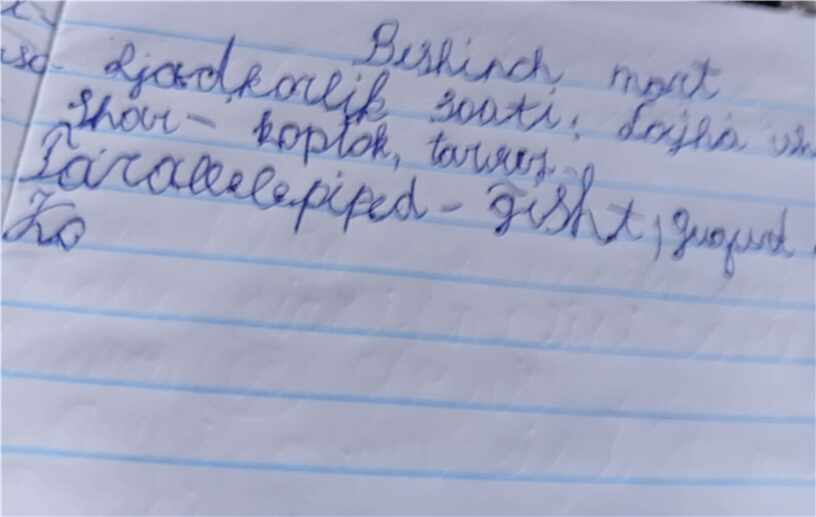 Beshinch mart
Ijodkorlik soati:
Shar - koptok, tarvuz.
Parallelepiped - g'isht, gugurd
Ko